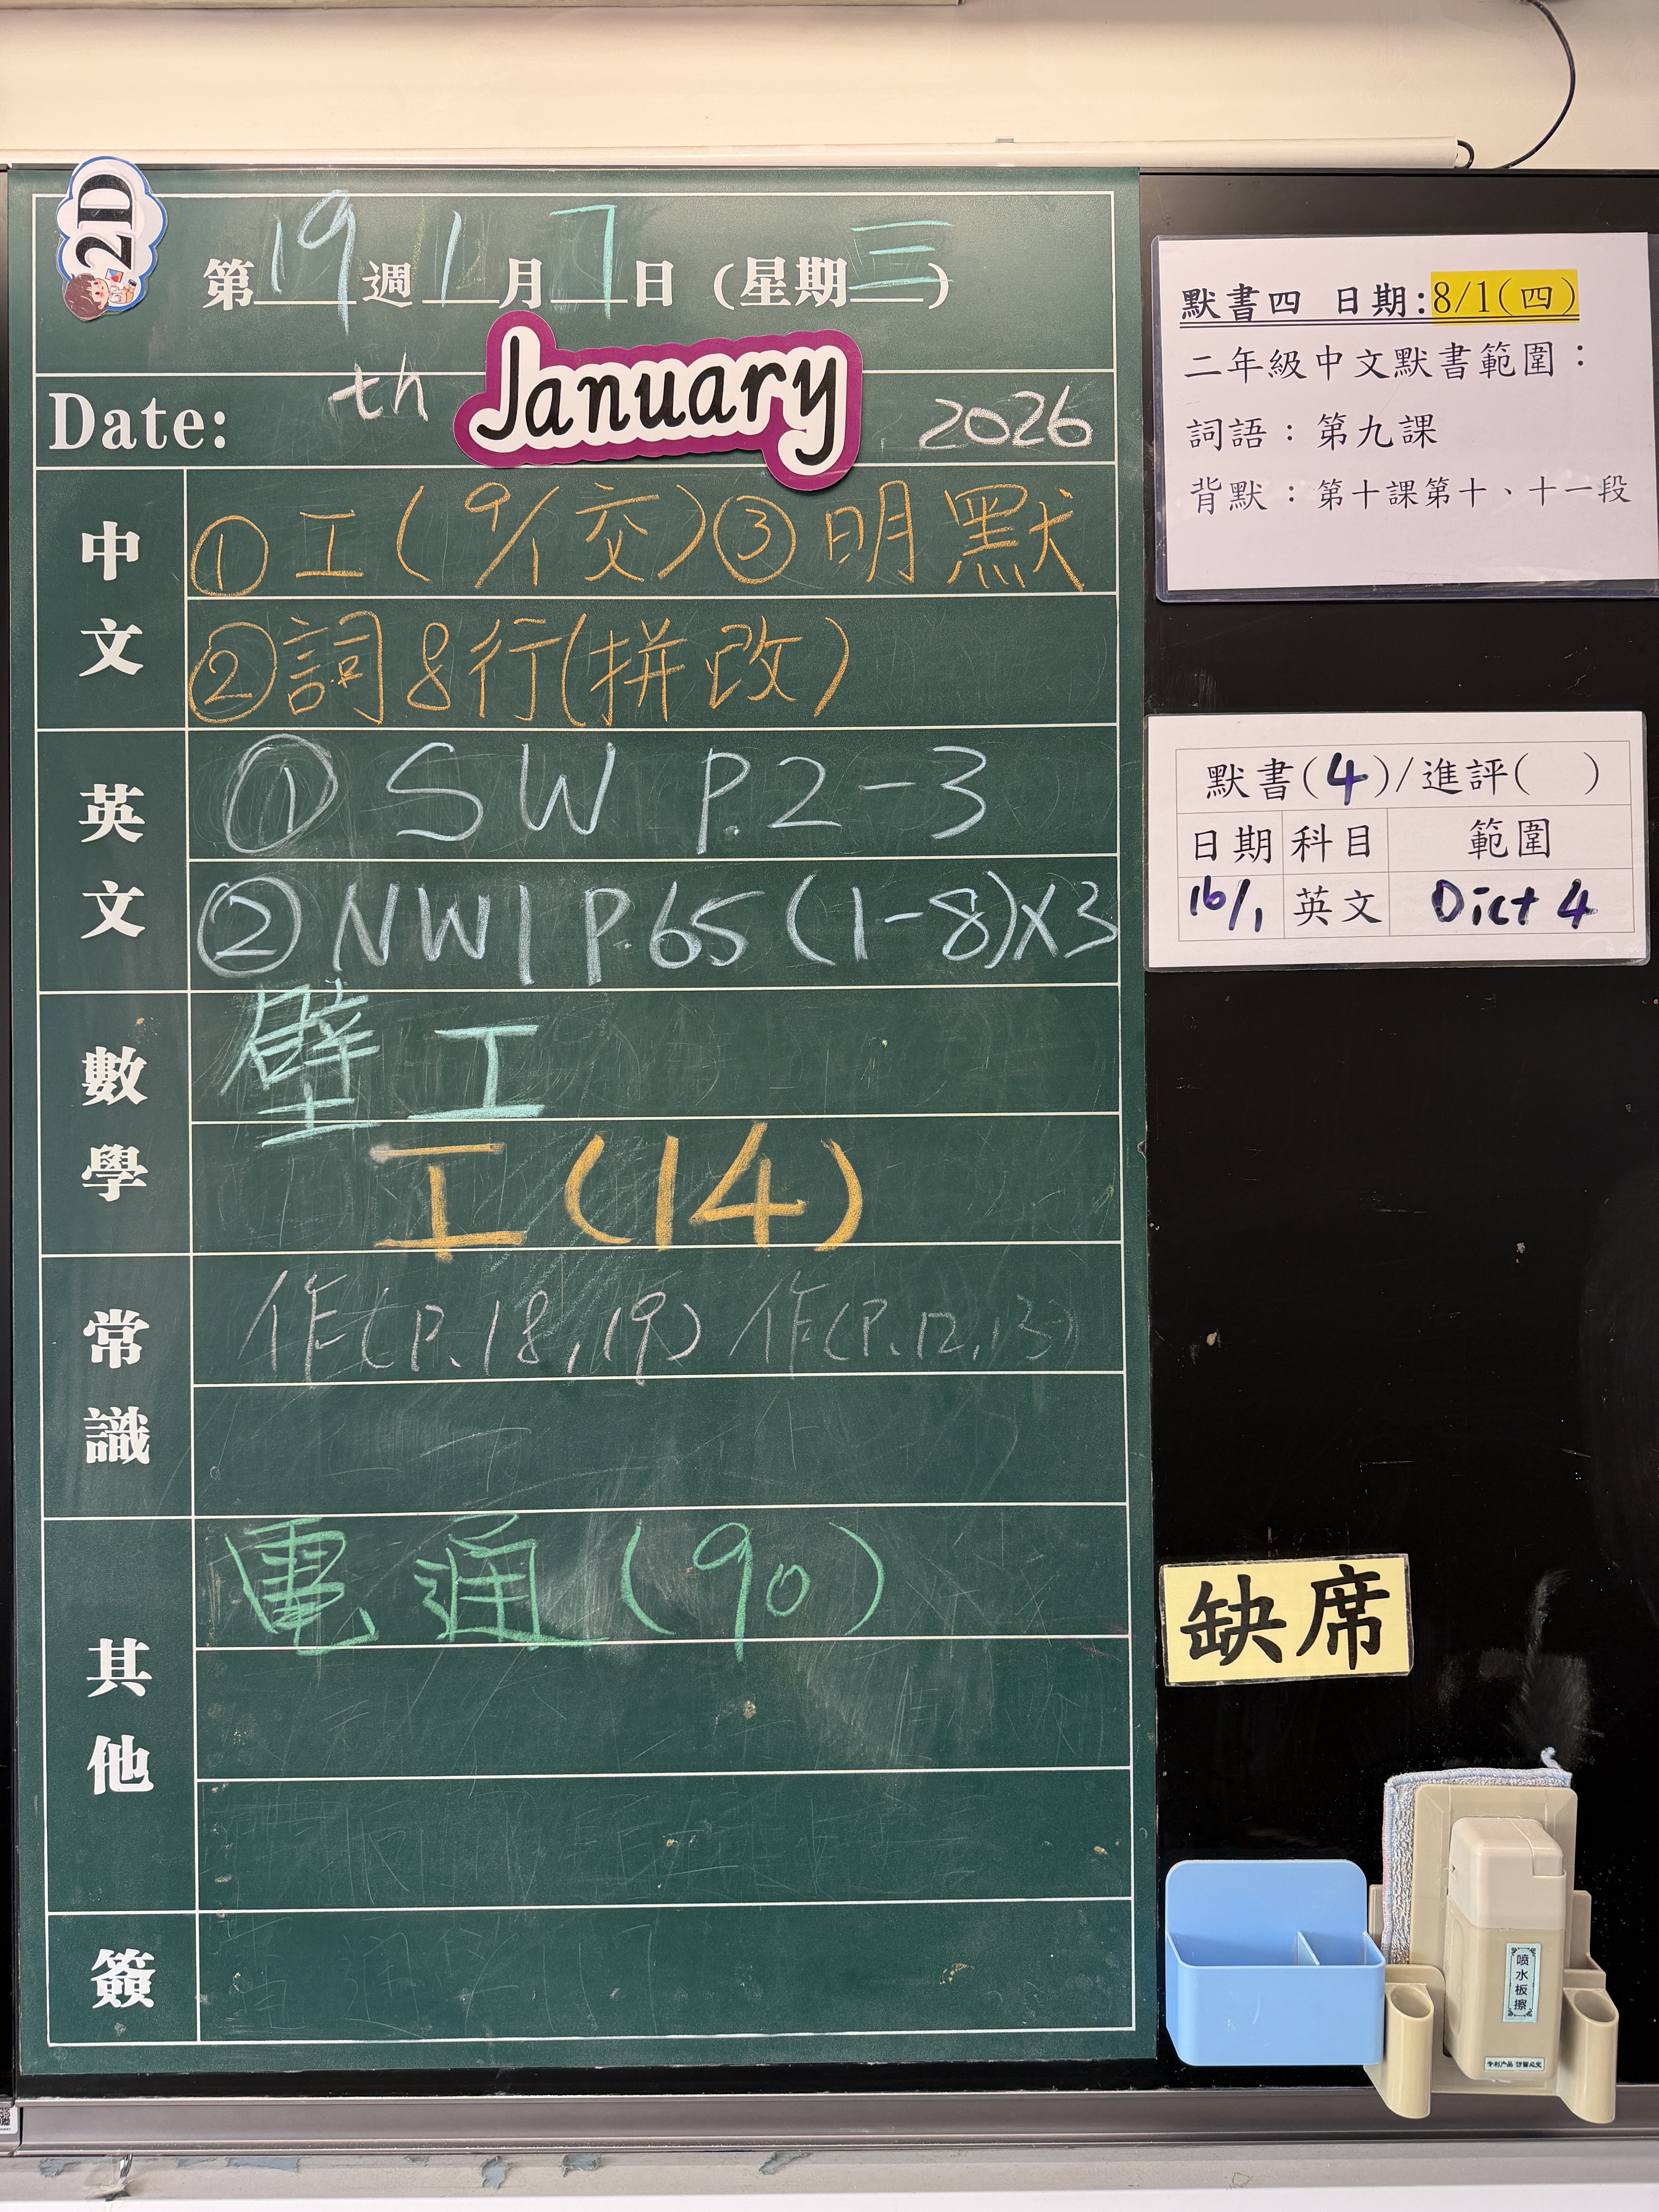 2D
第19週1月7日(星期三)
Date: th January 2026
中文
①工(9/1交)③明默
②詞8行(拼改)
英文
①SW P.2-3
②NW1 P.65(1-8)x3
數學
壁工
工(14)
常識
作(P.18,19) 作(P.12,13)
其他
電通(90)
簽
默書四 日期:8/1(四)
二年級中文默書範圍:
詞語:第九課
背默:第十課第十、十一段
默書(4)/進評( )
日期 科目 範圍
16/1 英文 Dict 4
缺席
喷水板擦